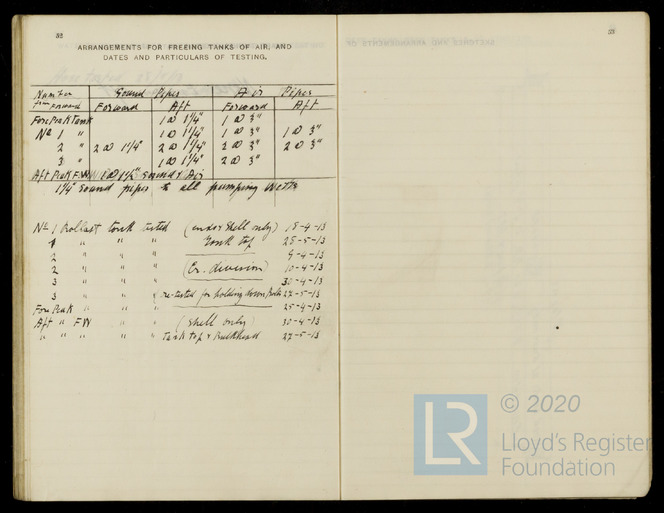 52
ARRANGEMENTS FOR FREEING TANKS OF AIR, AND
DATES AND PARTICULARS OF TESTING.
Number Sound Pipes Air Pipes
from Forward Forward Aft Forward Aft
Fore Peak Tank 1 @ 1¼" 1 @ 3"
No 1 " 1 @ 1¼" 1 @ 3" 1 @ 3"
2 " 2 @ 1¼" 2 @ 1¼" 2 @ 3" 2 @ 3"
3 " 1 @ 1¼" 2 @ 3"
Aft Peak F.W. 1 @ 1½" Sound & Air
1¼" Sound pipes to all pumping wells
No 1 Ballast tank tested (ends & shell only) 18-4-13
1 " " " Tank top 28-5-13
2 " " " 9-4-13
2 " " " (Cr. division) 10-4-13
3 " " " 30-4-13
3 " " " re-tested for holding down bolts 27-5-13
Fore Peak " " 25-4-13
Aft " FW " " (shell only) 30-4-13
" " " " " Tank top & bulkhead 27-5-13
53
LR
© 2020
Lloyd's Register
Foundation